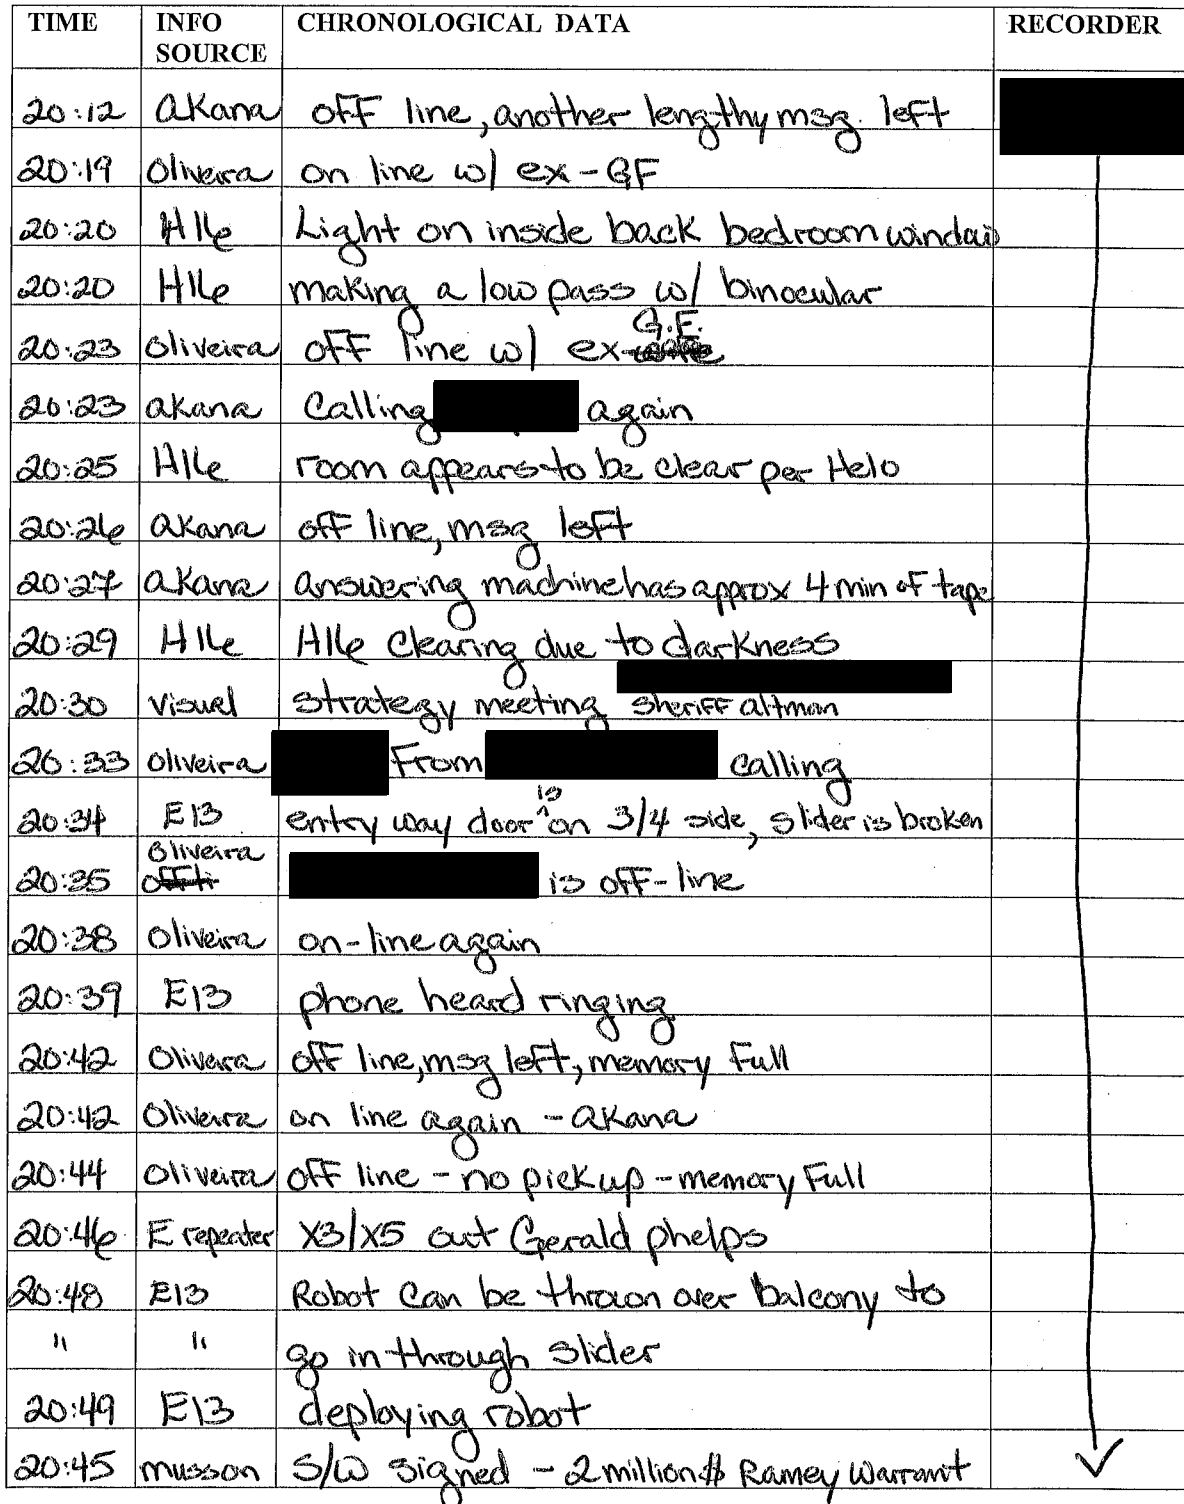 TIME INFO SOURCE CHRONOLOGICAL DATA RECORDER
20:12 Akana off line, another lengthy msg. left
20:19 Oliveira on line w/ ex-GF
20:20 H16 Light on inside back bedroom window
20:20 H16 making a low pass w/ binocular
20:23 Oliveira off line w/ ex- G.F.
20:23 Akana Calling again
20:25 H16 room appears to be clear per Helo
20:26 Akana off line, msg left
20:27 Akana answering machine has approx 4 min of tape
20:29 H16 H16 Clearing due to darkness
20:30 Visual strategy meeting Sheriff Altman
20:33 Oliveira From calling
20:34 E13 entry way door is on 3/4 side, slider is broken
20:35 Oliveira is off-line
20:38 Oliveira on-line again
20:39 E13 phone heard ringing
20:42 Oliveira off line, msg left, memory Full
20:42 Oliveira on line again - Akana
20:44 Oliveira off line - no pickup - memory Full
20:46 E repeater X3/X5 out Gerald phelps
20:48 E13 Robot Can be thrown over balcony to
" " go in through slider
20:49 E13 deploying robot
20:45 musson S/W signed - 2 million $ Ramey Warrant